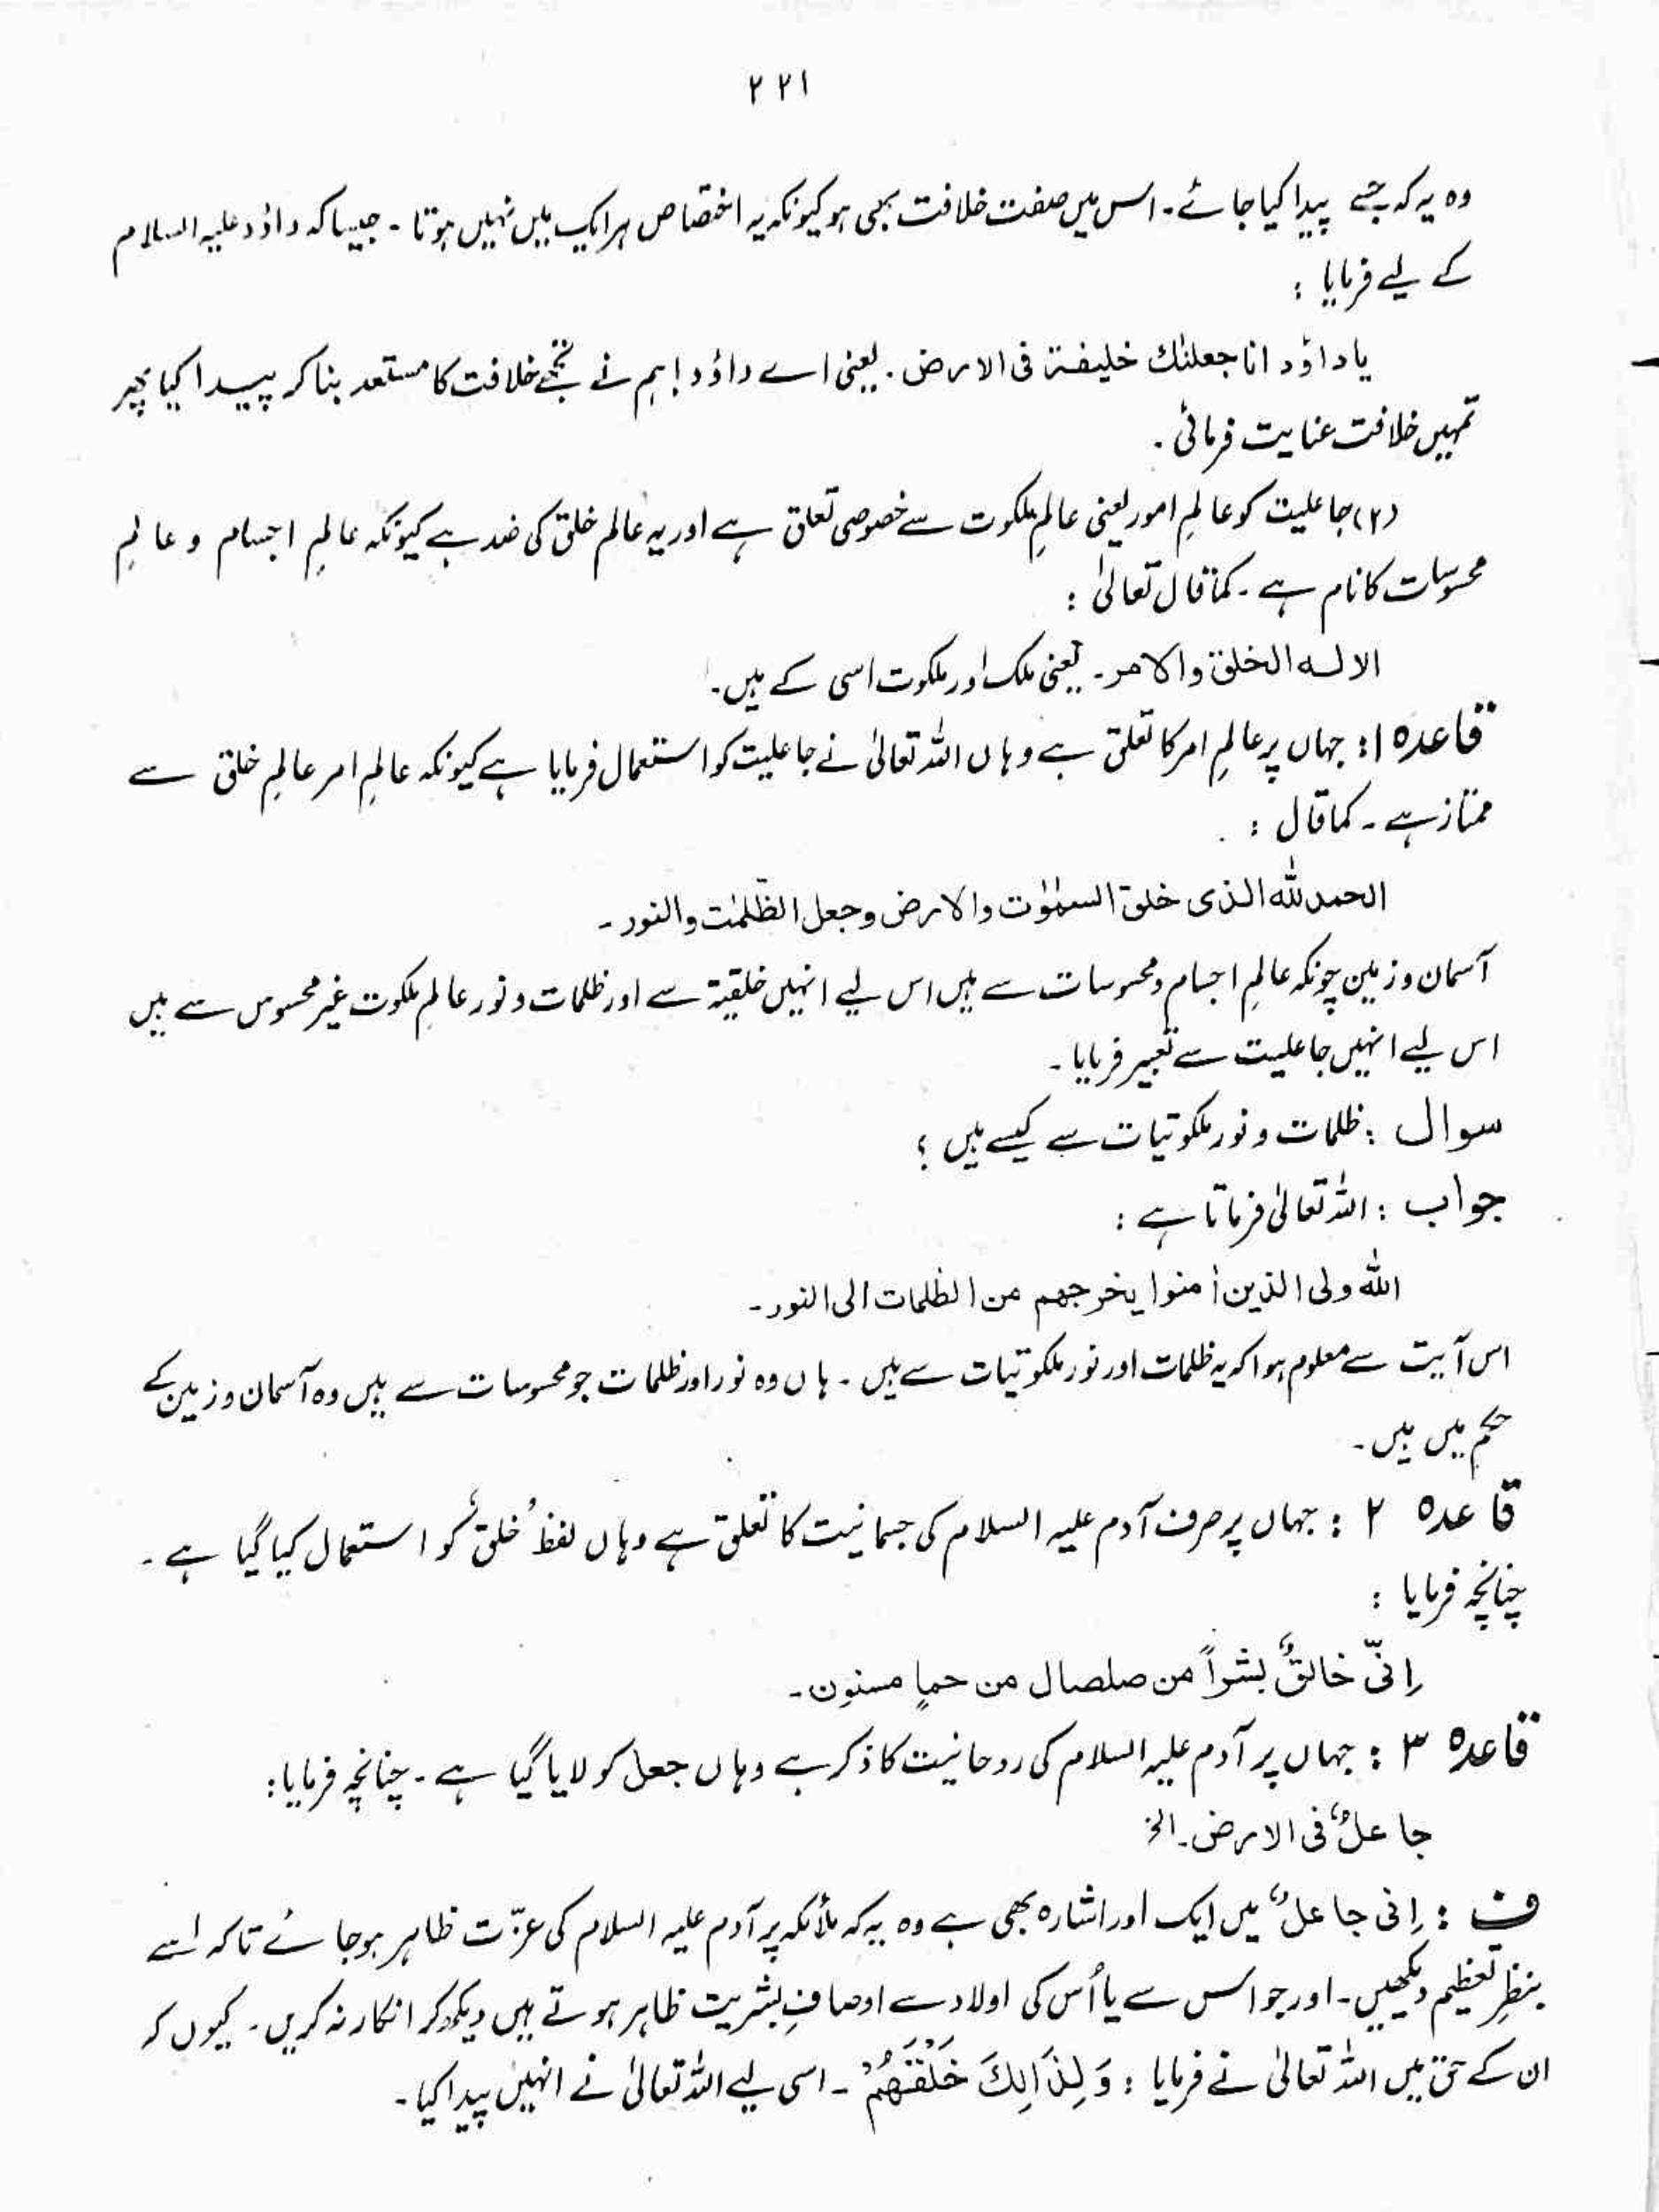 ۲۲۱
وہ یہ کہ جسے پیدا کیا جائے۔ اس میں صفت خلافت بھی ہو کیونکہ یہ اختصاص ہر ایک میں نہیں ہوتا۔ جیسا کہ داؤد علیہ السلام
کے لیے فرمایا :
یاداؤد انا جعلنٰك خلیفۃ فی الارض۔ یعنی اے داؤد! ہم نے تجھے خلافت کا مستعد بنا کر پیدا کیا پھر
تمہیں خلافت عنایت فرمائی۔
(۲) جاعلیت کو عالمِ امور یعنی عالمِ ملکوت سے خصوصی تعلق ہے اور یہ عالم خلق کی ضد ہے کیونکہ عالمِ اجسام و عالمِ
محسوسات کا نام ہے۔ کما قال تعالیٰ :
الا لہ الخلق والامر۔ یعنی ملک اور ملکوت اسی کے ہیں۔
قاعدہ ۱: جہاں پر عالمِ امر کا تعلق ہے وہاں اللہ تعالیٰ نے جاعلیت کو استعمال فرمایا ہے کیونکہ عالمِ امر عالمِ خلق سے
ممتاز ہے۔ کما قال :
الحمد للہ الذی خلق السمٰوٰت والارض وجعل الظّلمٰت والنور۔
آسمان و زمین چونکہ عالمِ اجسام و محسوسات سے ہیں اس لیے انہیں خلقیۃ سے اور ظلمات و نور عالمِ ملکوت غیر محسوس سے ہیں
اس لیے انہیں جاعلیت سے تعبیر فرمایا۔
سوال : ظلمات و نور ملکوتیات سے کیسے ہیں ؟
جواب : اللہ تعالیٰ فرماتا ہے :
اللہ ولی الذین اٰمنوا یخرجھم من الظلمات الی النور۔
اس آیت سے معلوم ہوا کہ یہ ظلمات اور نور ملکوتیات سے ہیں۔ ہاں وہ نور اور ظلمات جو محسوسات سے ہیں وہ آسمان و زمین کے
حکم میں ہیں۔
قاعدہ ۲ : جہاں پر صرف آدم علیہ السلام کی جسمانیت کا تعلق ہے وہاں لفظ 'خلق' کو استعمال کیا گیا ہے۔
چنانچہ فرمایا :
اِنّی خالقٌ بشراً من صلصال من حماٍ مسنون۔
قاعدہ ۳ : جہاں پر آدم علیہ السلام کی روحانیت کا ذکر ہے وہاں جعل کو لایا گیا ہے۔ چنانچہ فرمایا:
جاعلٌ فی الارض۔ الخ
ف : اِنی جاعلٌ میں ایک اور اشارہ بھی ہے وہ یہ کہ ملائکہ پر آدم علیہ السلام کی عزّت ظاہر ہو جائے تاکہ اسے
بنظرِ تعظیم دیکھیں۔ اور جو اس سے یا اُس کی اولاد سے اوصافِ بشریت ظاہر ہوتے ہیں دیکھ کر انکار نہ کریں۔ کیوں کہ
ان کے حق میں اللہ تعالیٰ نے فرمایا : وَ لِذَالِكَ خَلَقَهُمْ ۔ اسی لیے اللہ تعالیٰ نے انہیں پیدا کیا۔